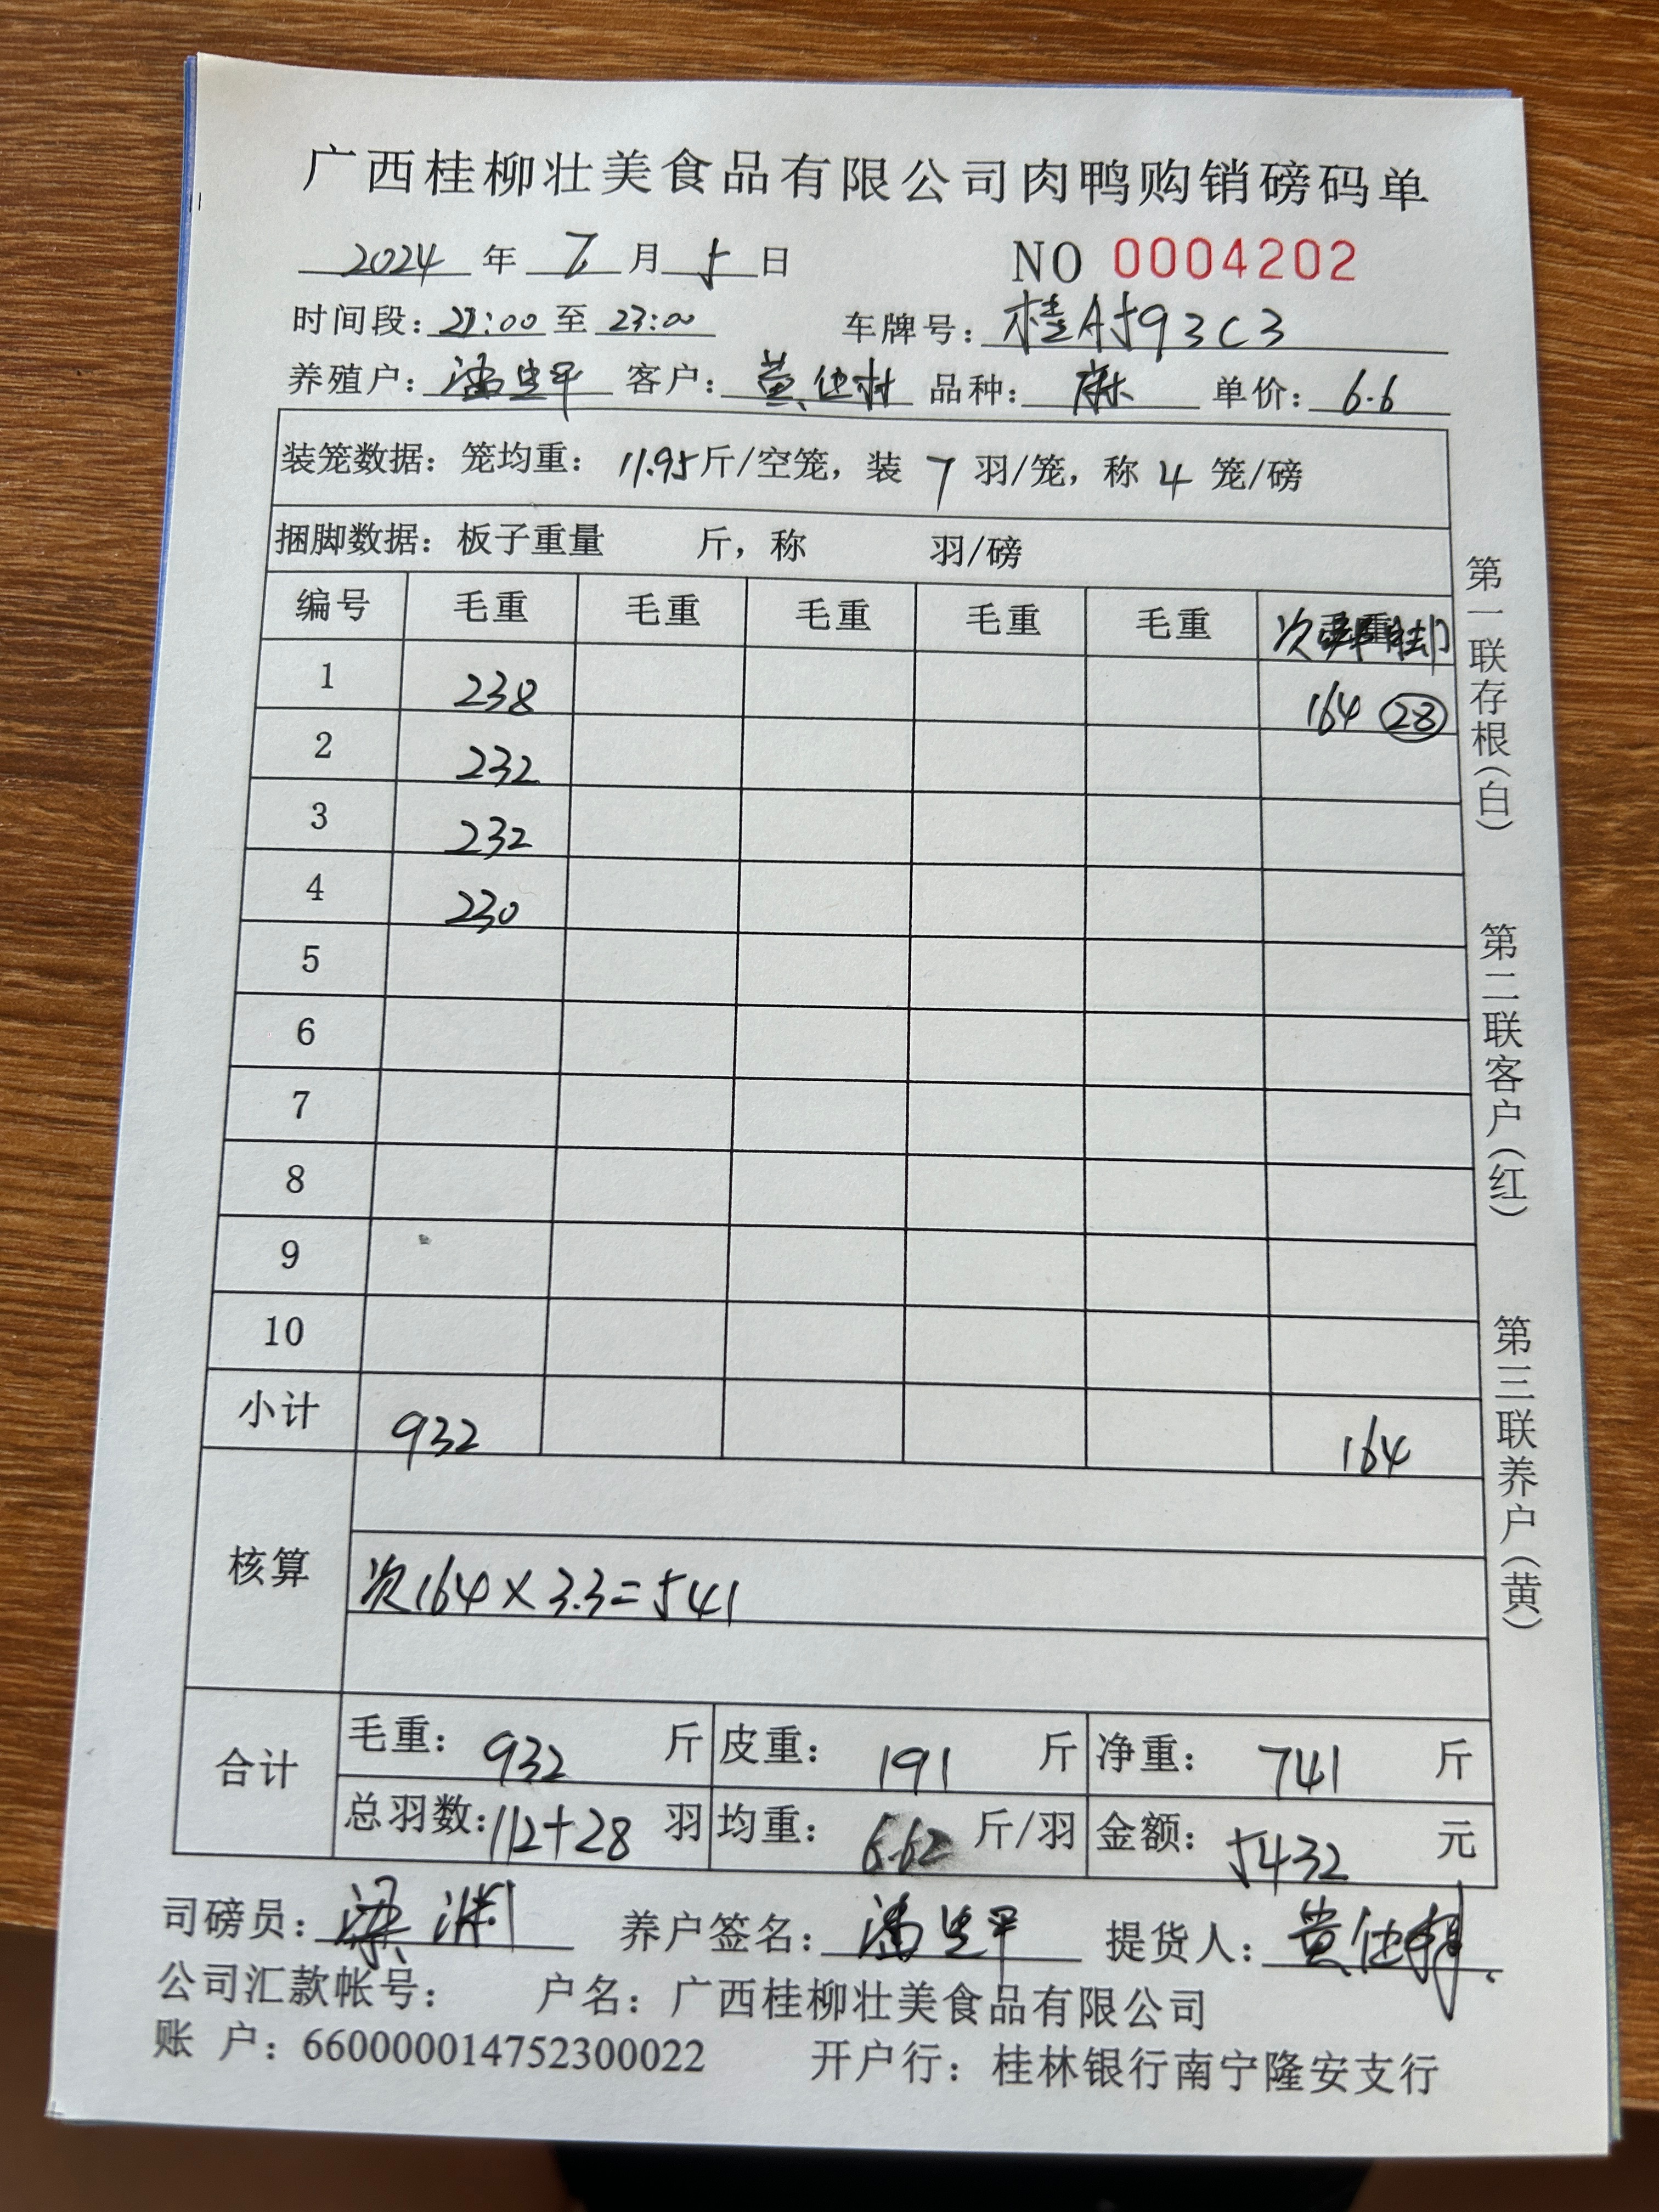 广西桂柳壮美食品有限公司肉鸭购销磅码单
2024 年 7 月 5 日 NO 0004202
时间段：21:00 至 23:00 车牌号：桂A593C3
养殖户：潘 平 客户：黄 品种：麻 单价：6.6
装笼数据：笼均重：11.95斤/空笼，装 7 羽/笼，称 4 笼/磅
捆脚数据：板子重量 斤，称 羽/磅
编号 毛重 毛重 毛重 毛重 毛重 次
1 238 164 28
2 232
3 232
4 230
5
6
7
8
9
10
小计 932 164
核算
次164×3.3=541
合计
毛重：932 斤 皮重：191 斤 净重：741 斤
总羽数：112+28 羽 均重：6.62 斤/羽 金额：5432 元
司磅员：梁 养户签名：潘 平 提货人：黄
公司汇款帐号： 户名：广西桂柳壮美食品有限公司
账 户：660000014752300022 开户行：桂林银行南宁隆安支行
第一联存根（白）
第二联客户（红）
第三联养户（黄）